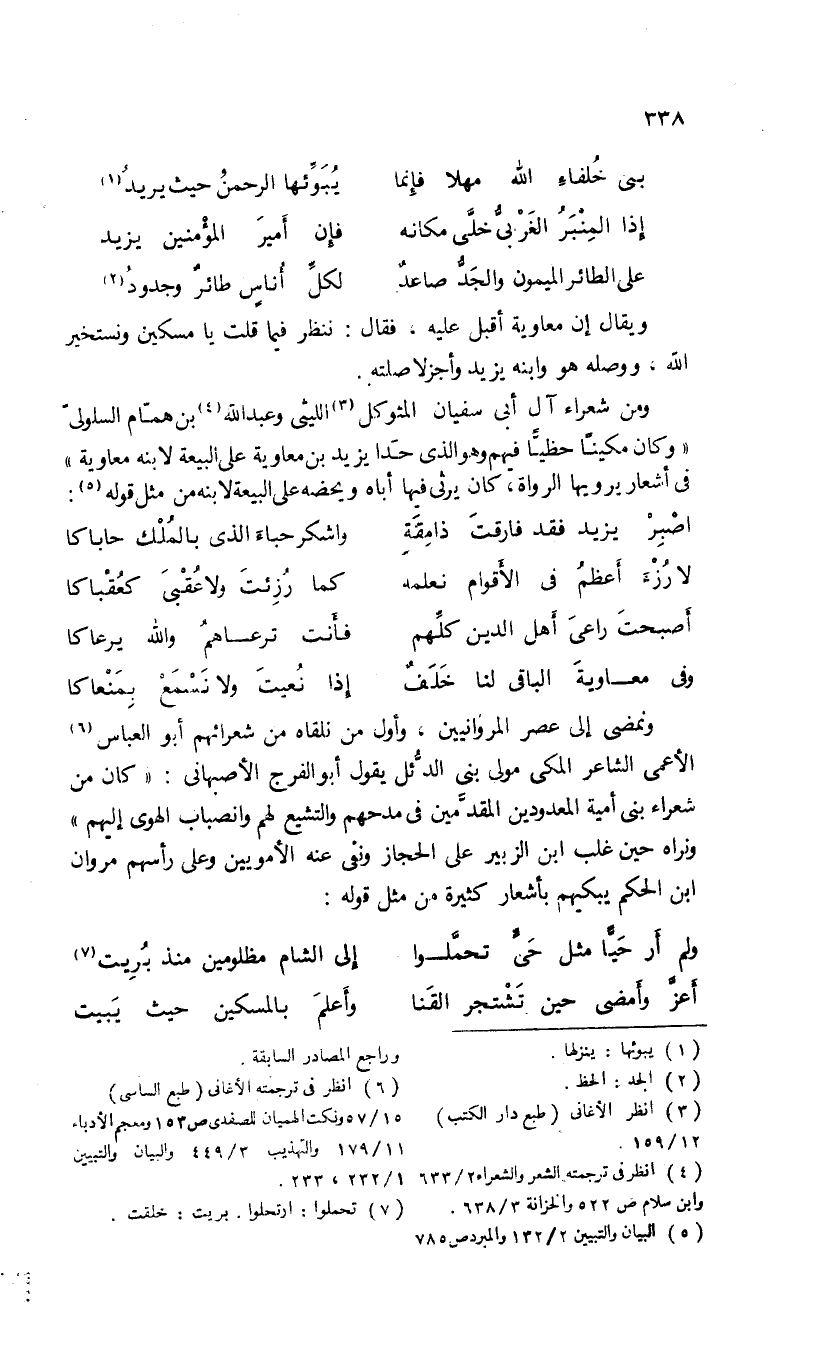 ٣٣٨
بنى خُلفاءِ الله مهلا فإِنما يُبَوِّئها الرحمنُ حيث يريدُ (١)
إذا المِنْبَرُ الغَرْبىُّ خلَّى مكانه فإن أَميرَ المؤْمنين يزيد
على الطائر الميمون والجَدُّ صاعدٌ لكلِّ أُناسٍ طائرٌ وجدودُ (٢)
ويقال إن معاوية أقبل عليه ، فقال : ننظر فيما قلت يا مسكين ونستخير
الله ، ووصله هو وابنه يزيد وأجزلا صلته .
ومن شعراء آل أبى سفيان المتوكل (٣) الليثى وعبدالله (٤) بن همّام السلولىّ
« وكان مكينًا حظيًّا فيهم وهو الذى حدا يزيد بن معاوية على البيعة لابنه معاوية »
فى أشعار يرويها الرواة ، كان يرثى فيها أباه ويحضه على البيعة لابنه من مثل قوله (٥) :
اصْبِرْ يزيد فقد فارقتَ ذامِقَةٍ واشكر حباءَ الذى بالمُلْك حاباكا
لا رُزْءَ أَعظمُ فى الأَقوام نعلمه كما رُزِئتَ ولا عُقْبىَ كعُقْباكا
أصبحتَ راعىَ أهل الدين كلِّهم فأَنت ترعاهمُ والله يرعاكا
وفى معاويةَ الباقى لنا خَلَفٌ إذا نُعيتَ ولا نَسْمَعْ بِمَنْعاكا
ونمضى إلى عصر المروانيين ، وأول من نلقاه من شعرائهم أبو العباس (٦)
الأعمى الشاعر المكى مولى بنى الدُّئل يقول أبو الفرج الأصبهانى : « كان من
شعراء بنى أمية المعدودين المقدَّمين فى مدحهم والتشيع لهم وانصباب الهوى إليهم »
ونراه حين غلب ابن الزبير على الحجاز ونفى عنه الأمويين وعلى رأسهم مروان
ابن الحكم يبكيهم بأشعار كثيرة من مثل قوله :
ولم أَر حَيًّا مثل حَىٍّ تحمَّلوا إلى الشام مظلومين منذ بُرِيت (٧)
أَعزَّ وأَمضى حين تَشْتجر القَنا وأَعلمَ بالمسكين حيث يَبيت
(١) يبوئها : ينزلها .
(٢) الجد : الحظ .
(٣) انظر الأغانى (طبع دار الكتب)
١٢/١٥٩ .
(٤) انظر فى ترجمته الشعر والشعراء ٢/٦٣٣
وابن سلام ص ٥٢٢ والخزانة ٣/٦٣٨ .
(٥) البيان والتبيين ٢/١٣٢ والمبرد ص ٧٨٥
وراجع المصادر السابقة .
(٦) انظر فى ترجمته الأغانى (طبع الساسى)
١٥/٥٧ ونكت الهميان للصفدى ص ١٥٣ ومعجم الأدباء
١١/١٧٩ والتهذيب ٣/٤٤٩ والبيان والتبيين
١/٢٣٢ ، ٢٣٣ .
(٧) تحملوا : ارتحلوا . بريت : خلقت .